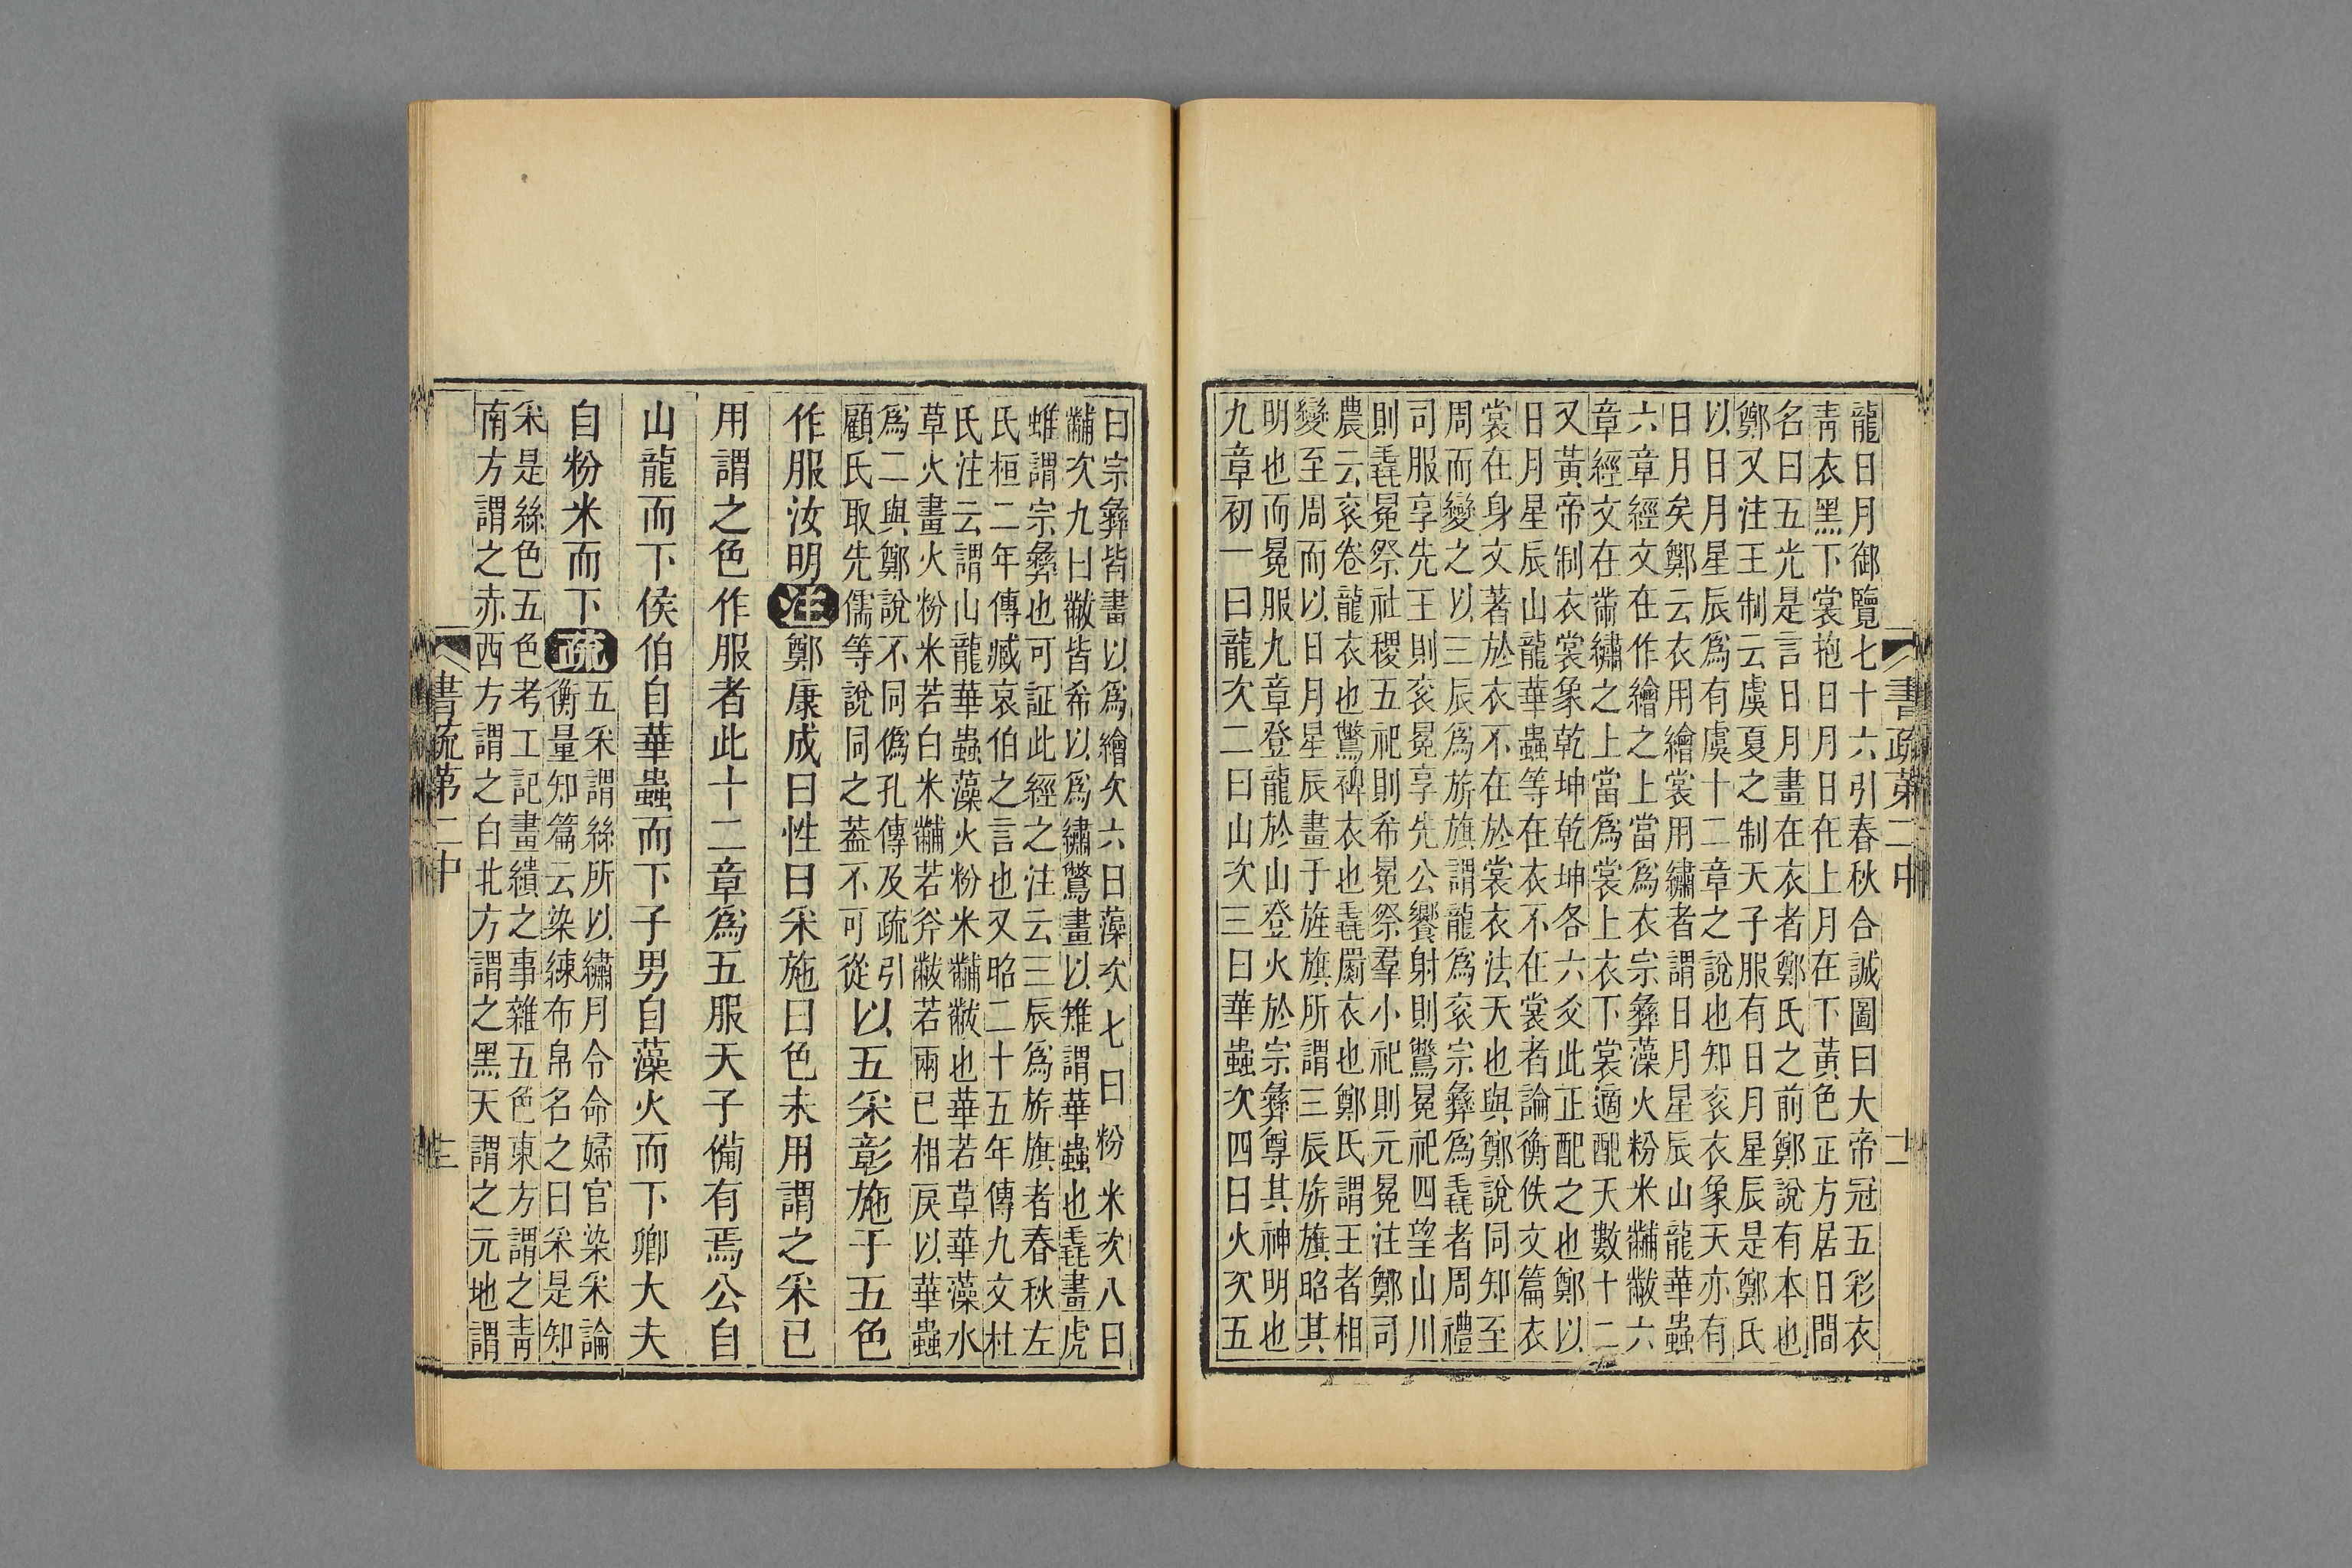 龍日月御覽七十六引春秋合誠圖曰大帝冠五彩衣
靑衣黑下裳抱日月日在上月在下黃色正方居日間
名曰五光是言日月畫在衣者鄭氏之前鄭說有本也
鄭又注王制云虞夏之制天子服有日月星辰是鄭氏
以日月星辰爲有虞十二章之說也知衮衣象天亦有
日月矣鄭云衣用繪裳用繡者謂日月星辰山龍華蟲
六章經文在作繪之上當爲衣宗彝藻火粉米黼黻六
章經文在黹繡之上當爲裳上衣下裳適配天數十二
又黃帝制衣裳象乾坤乾坤各六爻此正配之也鄭以
日月星辰山龍華蟲等在衣不在裳者論衡佚文篇衣
裳在身文著於衣不在於裳衣法天也與鄭說同知至
周而變之以三辰爲旂旗謂龍爲衮宗彝爲毳者周禮
司服享先王則衮冕享先公饗射則鷩冕祀四望山川
則毳冕祭社稷五祀則希冕祭羣小祀則元冕注鄭司
農云衮卷龍衣也鷩裨衣也毳罽衣也鄭氏謂王者相
變至周而以日月星辰畫于旌旗所謂三辰旂旗昭其
明也而冕服九章登龍於山登火於宗彝尊其神明也
九章初一曰龍次二曰山次三曰華蟲次四曰火次五
書疏第二中
十二
曰宗彝皆畫以爲繪次六曰藻次七曰粉米次八曰
黼次九曰黻皆希以爲繡鷩畫以雉謂華蟲也毳畫虎
蜼謂宗彝也可証此經之注云三辰爲旂旗者春秋左
氏桓二年傳臧哀伯之言也又昭二十五年傳九文杜
氏注云謂山龍華蟲藻火粉米黼黻也華若草華藻水
草火畫火粉米若白米黼若斧黻若兩已相戾以華蟲
爲二與鄭說不同僞孔傳及疏引
顧氏取先儒等說同之葢不可從
以五采彰施于五色
作服汝明注鄭康成曰性曰采施曰色未用謂之采已
用謂之色作服者此十二章爲五服天子備有焉公自
山龍而下侯伯自華蟲而下子男自藻火而下卿大夫
自粉米而下疏
五采謂絲所以繡月令命婦官染采論
衡量知篇云染練布帛名之曰采是知
采是絲色五色考工記畫繢之事雜五色東方謂之靑
南方謂之赤西方謂之白北方謂之黑天謂之元地謂
書疏第二中